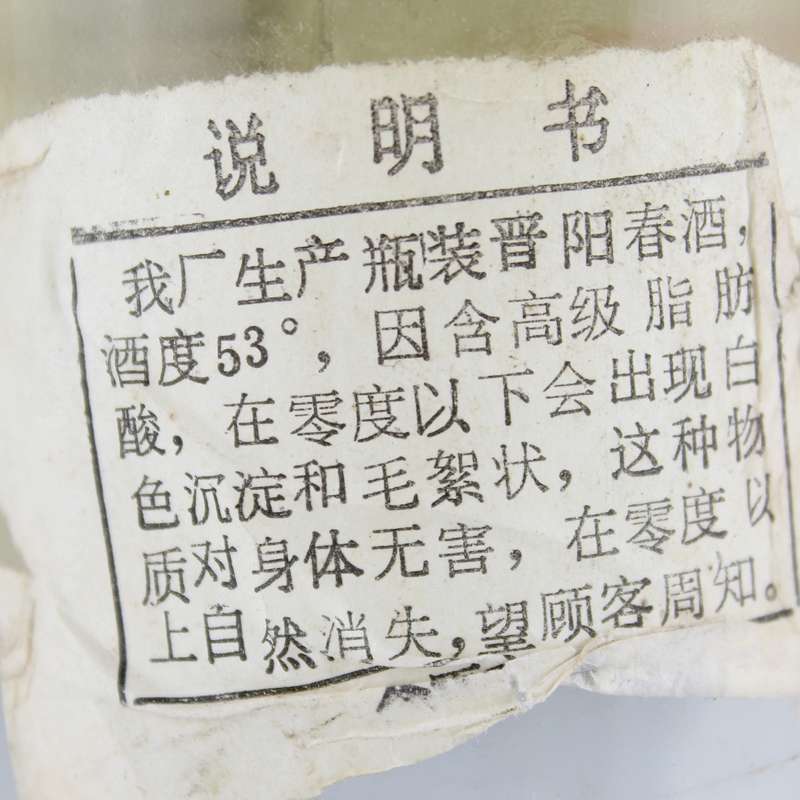 说明书
我厂生产瓶装晋阳春酒，
酒度53°，因含高级脂肪
酸，在零度以下会出现白
色沉淀和毛絮状，这种物
质对身体无害，在零度以
上自然消失，望顾客周知。